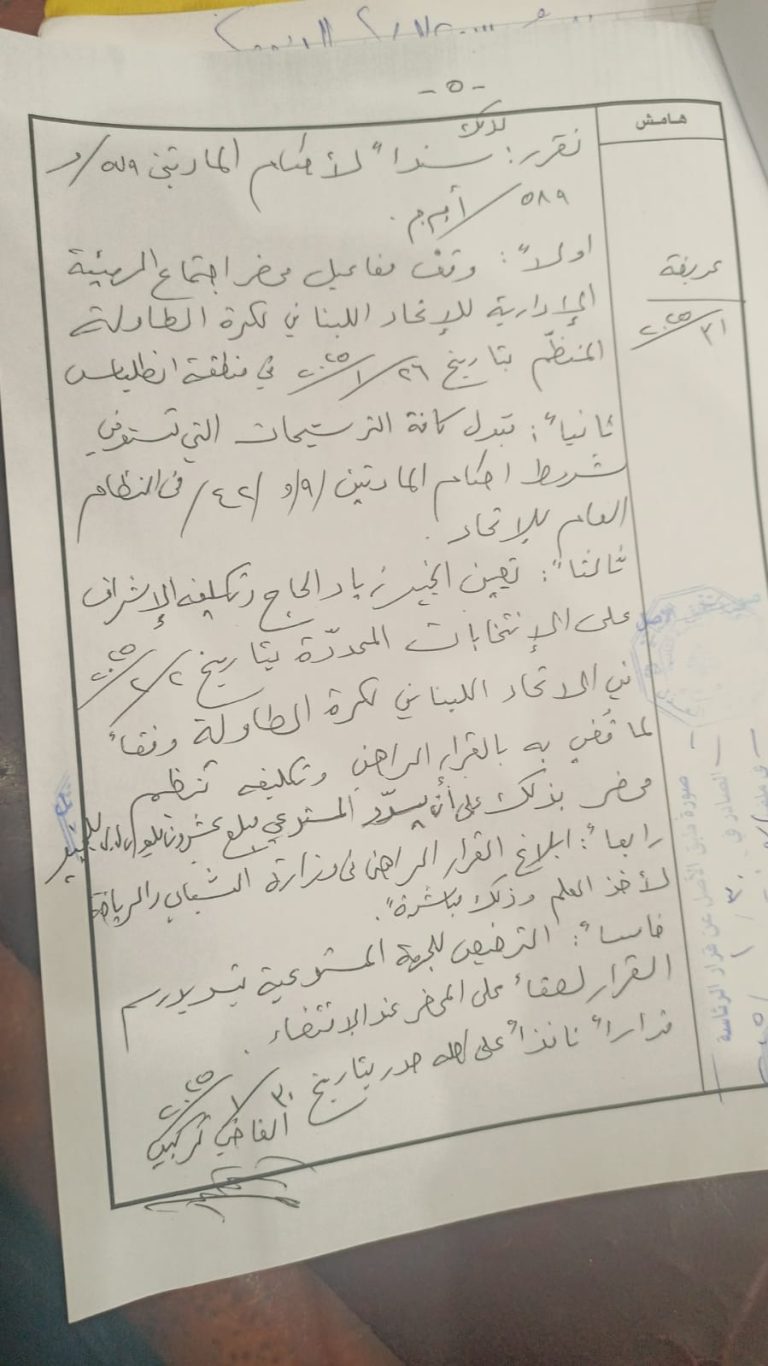 - ٥ -
هامش
لذلك
نقرر: سنداً لأحكام المادتين ٥٧٩/ و
٥٨٩/ أ.م.م.
اولاً: وقف مفاعيل محضر اجتماع الهيئة
الإدارية للإتحاد اللبناني لكرة الطاولة
المنظّم بتاريخ ٢٦/١/٢٠٢٥ في منطقة انطلياس
ثانياً: قبول كافة الترشيحات التي تستوفي
شروط احكام المادتين /٩/ و /٤٢/ من النظام
العام للاتحاد.
ثالثاً: تعيين الخبير زياد الحاج وتكليفه الإشراف
على الإنتخابات المحدّدة بتاريخ ٢/٢/٢٠٢٥
في الاتحاد اللبناني لكرة الطاولة وفقاً
لما قُضي به بالقرار الراهن وتكليفه تنظيم
محضر بذلك على أن يسدّد المستدعي مبلغ عشرون مليون ل.ل. للخبير
رابعاً: ابلاغ القرار الراهن من وزارة الشباب والرياضة
لأخذ العلم وذلك مباشرةً.
خامساً: الترخيص للجهة المستدعية بتسديد رسم
القرار لصقاً على المحضر عند الاقتضاء.
قراراً نافذاً على اصله صدر بتاريخ ٣٠/١/٢٠٢٥
القاضي
عريضة
٣١/٢٠٢٥
صورة طبق الأصل عن قرار الرئاسة
الصادر في ٣٠/١/